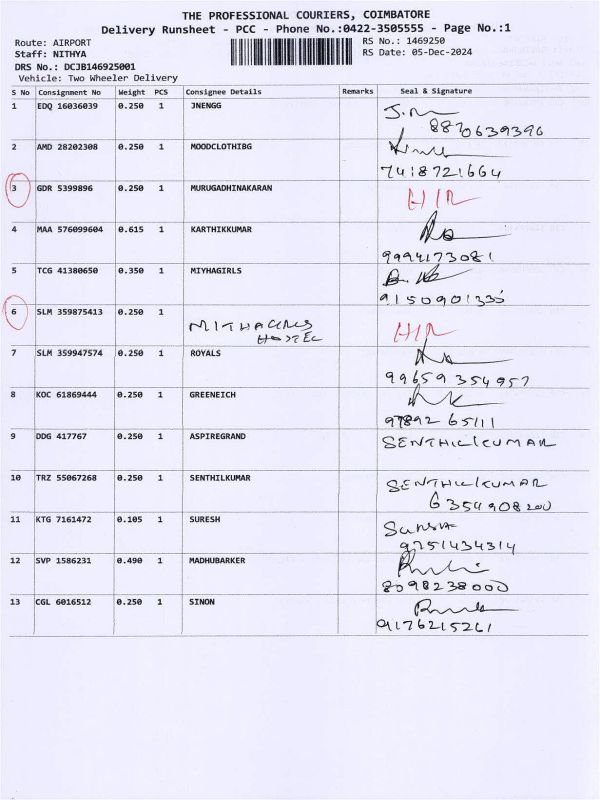 THE PROFESSIONAL COURIERS, COIMBATORE
Delivery Runsheet - PCC - Phone No.:0422-3505555 - Page No.:1
Route: AIRPORT
Staff: NITHYA
DRS No.: DCJB146925001
Vehicle: Two Wheeler Delivery
RS No.: 1469250
RS Date: 05-Dec-2024
S No Consignment No Weight PCS Consignee Details Remarks Seal & Signature
1 EDQ 16036039 0.250 1 JNENGG
8870639396
2 AMD 28202308 0.250 1 MOODCLOTHIBG
7418721664
3 GDR 5399896 0.250 1 MURUGADHINAKARAN
4 MAA 576099604 0.615 1 KARTHIKKUMAR
9994173081
5 TCG 41380650 0.350 1 MIYHAGIRLS
6 SLM 359875413 0.250 1
HOSTEL
7 SLM 359947574 0.250 1 ROYALS
99659354957
8 KOC 61869444 0.250 1 GREENEICH
97892 65111
9 DDG 417767 0.250 1 ASPIREGRAND SENTHILKUMAR
10 TRZ 55067268 0.250 1 SENTHILKUMAR SENTHILKUMAR
6354908200
11 KTG 7161472 0.105 1 SURESH
9751434314
12 SVP 1586231 0.490 1 MADHUBARKER
8098238000
13 CGL 6016512 0.250 1 SINON
9176215261